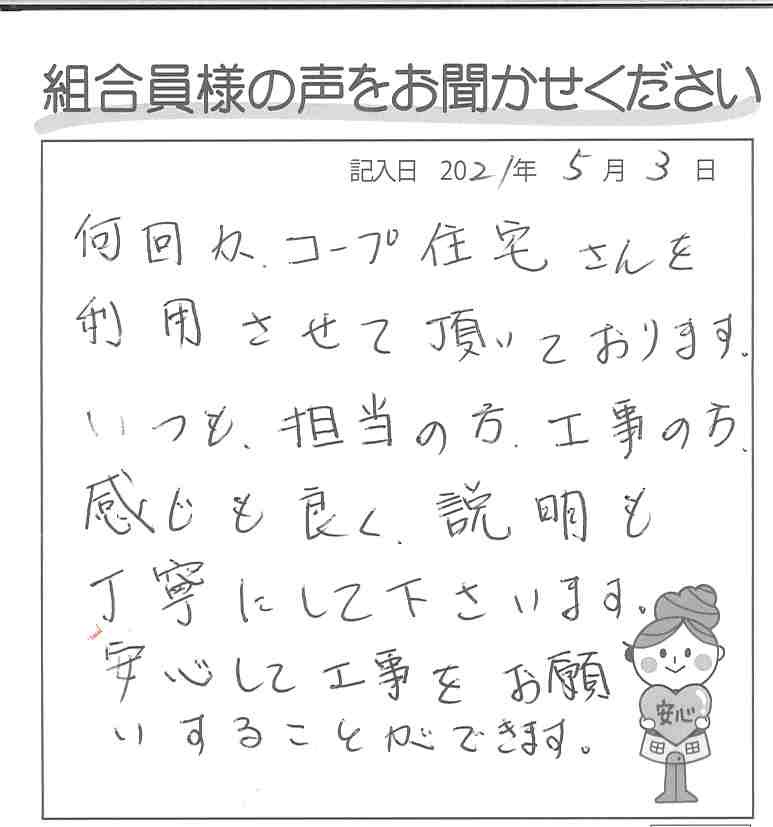 組合員様の声をお聞かせください
記入日 2021年 5月 3日
何回か、コープ住宅さんを
利用させて頂いております。
いつも、担当の方、工事の方、
感じも良く、説明も
丁寧にして下さいます。
安心して工事をお願
いすることができます。
安心